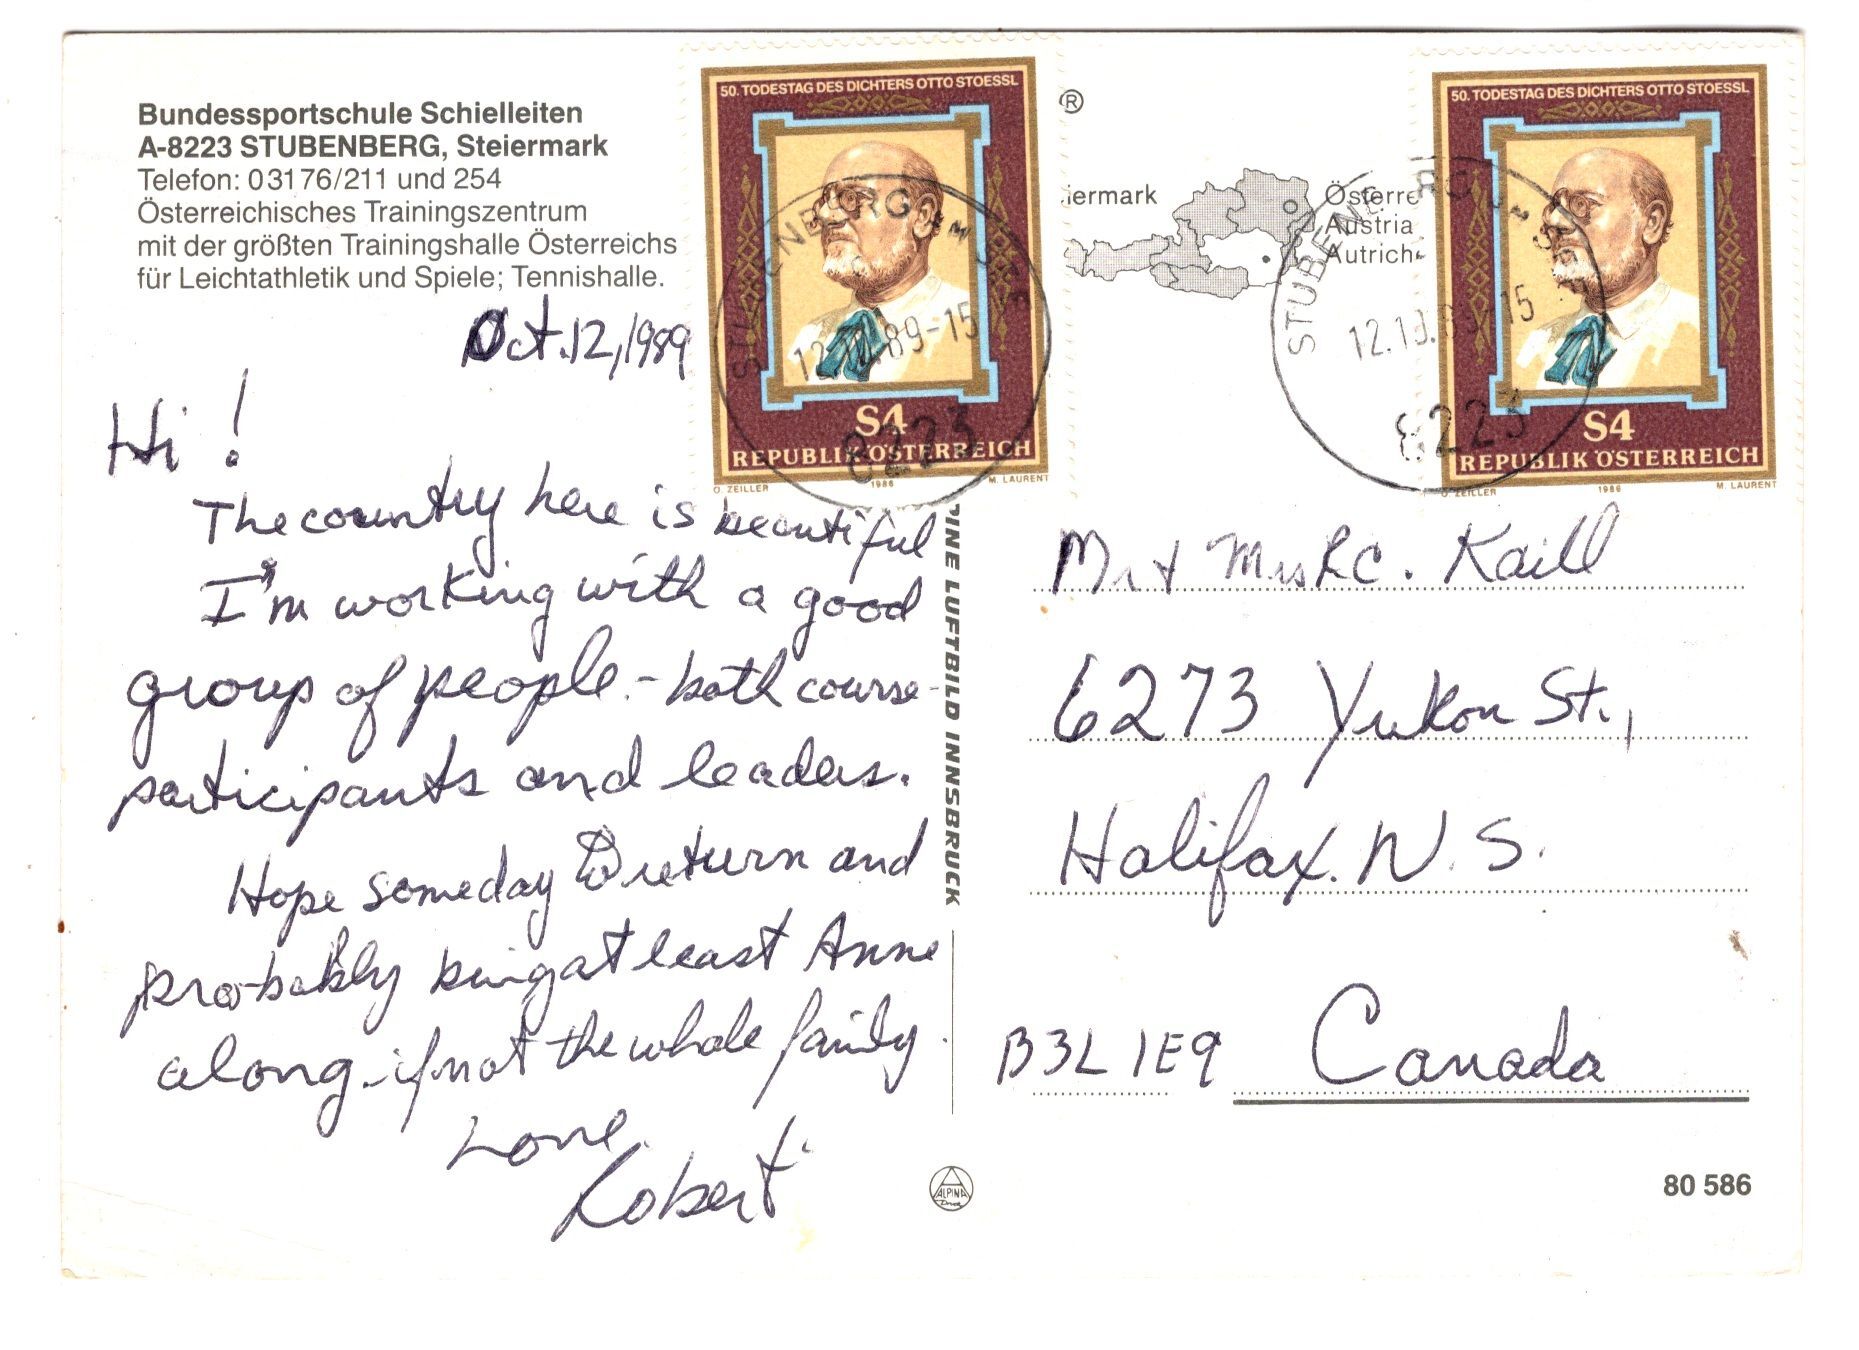 Bundessportschule Schielleiten
A-8223 STUBENBERG, Steiermark
Telefon: 0 31 76/211 und 254
Österreichisches Trainingszentrum
mit der größten Trainingshalle Österreichs
für Leichtathletik und Spiele; Tennishalle.
Oct. 12, 1989
Hi!
The country here is beautiful
I'm working with a good
group of people - both course-
participants and leaders.
Hope someday to return and
probably bring at least Anne
along - if not the whole family.
Love,
Robert
50. TODESTAG DES DICHTERS OTTO STOESSL
S4
REPUBLIK ÖSTERREICH
O. ZEILLER 1986 M. LAURENT
12.10.89-15
8223
®
iermark
Österre
Austria
Autrich
50. TODESTAG DES DICHTERS OTTO STOESSL
S4
REPUBLIK ÖSTERREICH
O. ZEILLER 1986 M. LAURENT
STUBENBERG
12.10.89-15
8223
PINE LUFTBILD INNSBRUCK
Mr + Mrs R.C. Kaill
6273 Yukon St.,
Halifax. N.S.
B3L 1E9 Canada
ALPINA
Druck
80 586